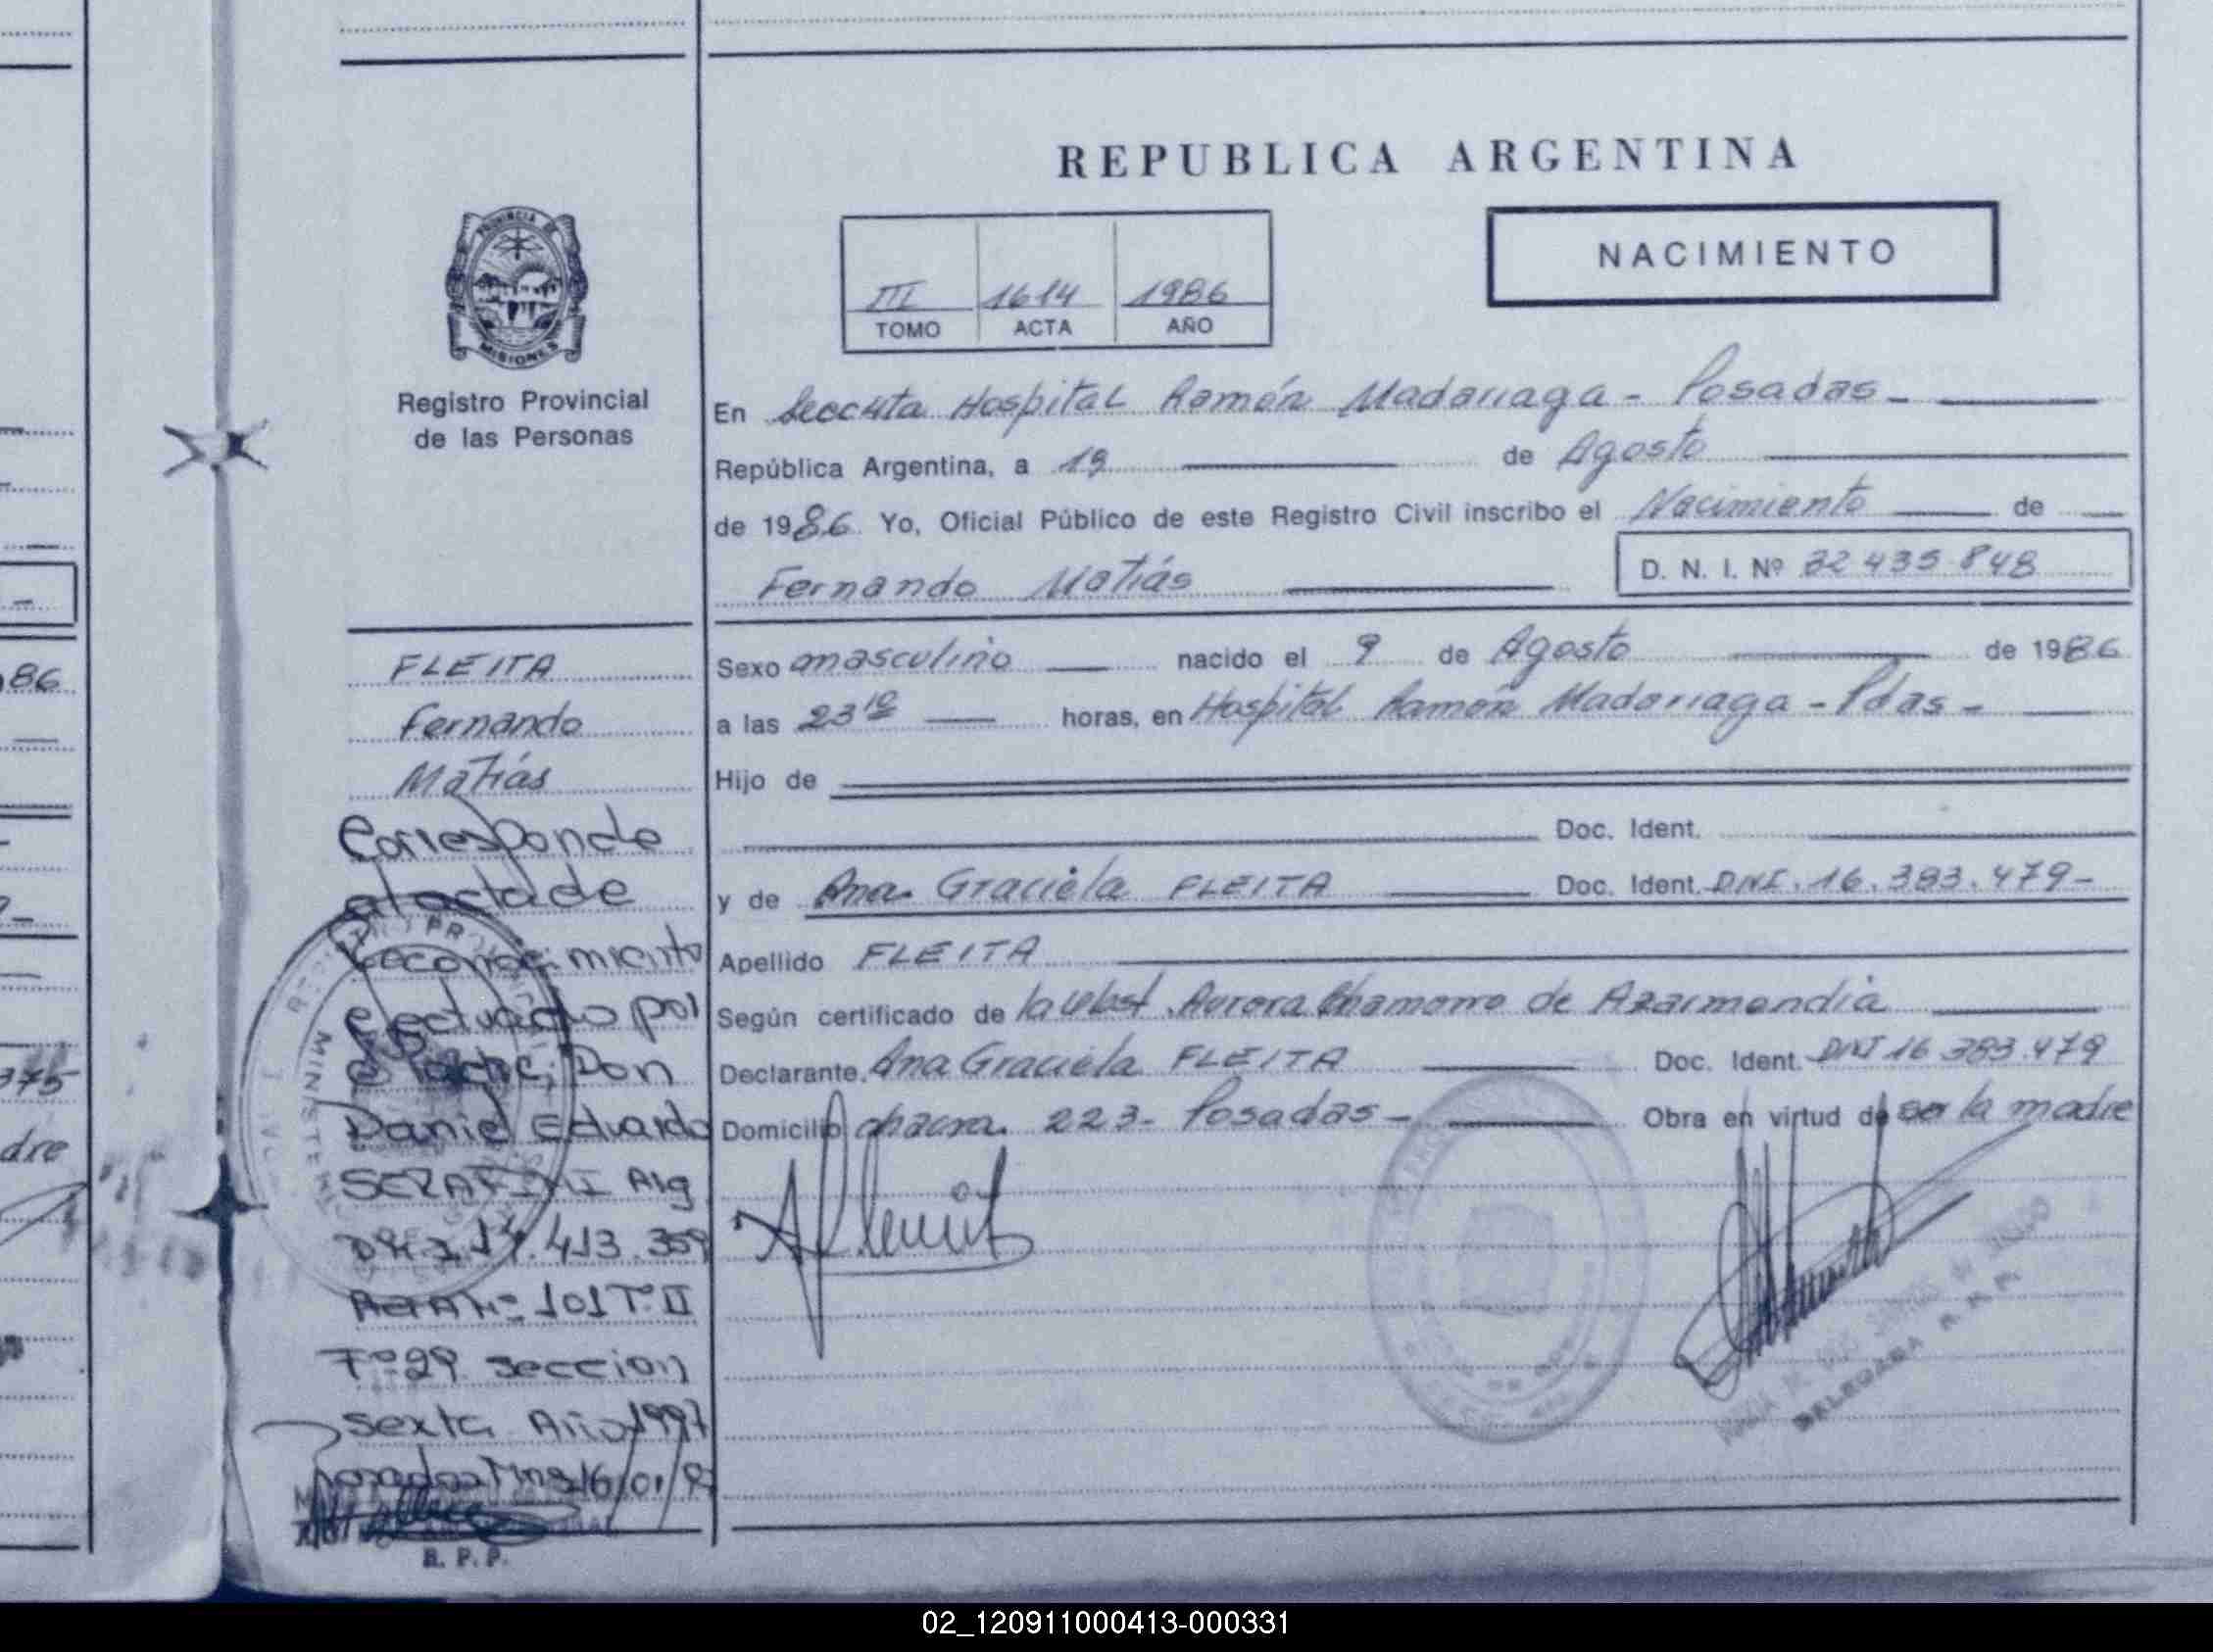 REPUBLICA ARGENTINA
NACIMIENTO
III 1614 1986
TOMO ACTA AÑO
PROVINCIA DE
MISIONES
Registro Provincial
de las Personas
En Hospital Ramón Madariaga - Posadas -
República Argentina, a 19 de Agosto
de 1986 Yo, Oficial Público de este Registro Civil inscribo el Nacimiento de
Fernando Matiás
D. N. I. Nº 32 435 848
Sexo masculino nacido el 9 de Agosto de 1986
a las 23 10 horas, en Hospital Ramón Madariaga - Pdas -
Hijo de
Doc. Ident.
y de Ana Graciela FLEITA Doc. Ident. DNI. 16.383.479-
Apellido FLEITA
Según certificado de la Aurora Chamorro de Azarmendia
Declarante, Ana Graciela FLEITA Doc. Ident. DNI 16 383.479
Domicilio chacra 223- Posadas - Obra en virtud de ser la madre
DELEGADA R. P. P.
FLEITA
Fernando
Matiás
Corresponde
al acta de
Reconocimiento
efectuado por
el padre, Don
Daniel Eduardo
SERAFINI Arg
DNI 17.413.359
Acta Nº 101 Tº II
Fº 29 seccion
sexta Año 1997
Posadas Mnes 16/01/97
R. P. P.
86
375
dre
02_120911000413-000331